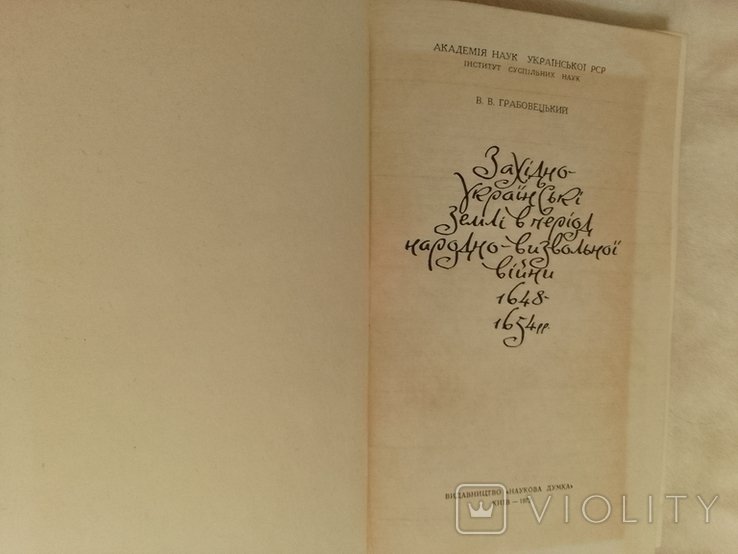 АКАДЕМІЯ НАУК УКРАЇНСЬКОЇ РСР
ІНСТИТУТ СУСПІЛЬНИХ НАУК
В. В. ГРАБОВЕЦЬКИЙ
Західно-
українські
землі в період
народно-визвольної
війни
1648-
1654 рр.
ВИДАВНИЦТВО «НАУКОВА ДУМКА»
КИЇВ —
VIOLITY